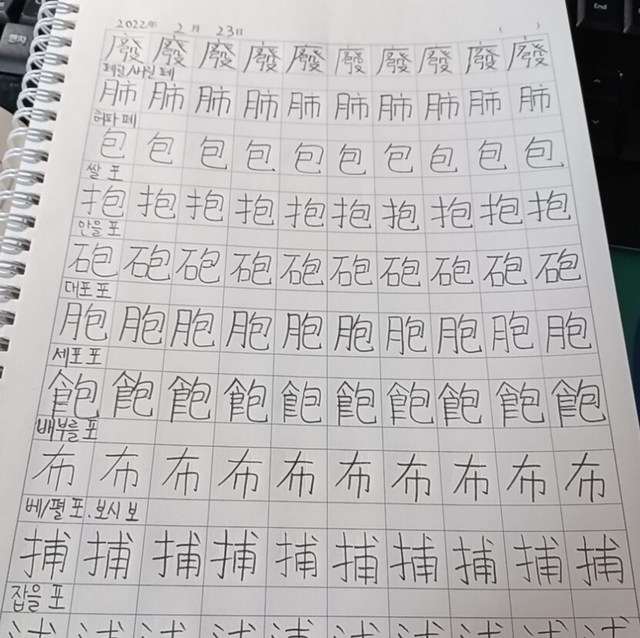 End
한자
2022年 2月 23日 ( )
廢 廢 廢 廢 廢 廢 廢 廢 廢 廢
폐
肺 肺 肺 肺 肺 肺 肺 肺 肺 肺
허파 폐
包 包 包 包 包 包 包 包 包 包
쌀 포
抱 抱 抱 抱 抱 抱 抱 抱 抱 抱
안을 포
砲 砲 砲 砲 砲 砲 砲 砲 砲 砲
대포 포
胞 胞 胞 胞 胞 胞 胞 胞 胞 胞
세포 포
飽 飽 飽 飽 飽 飽 飽 飽 飽 飽
배부를 포
布 布 布 布 布 布 布 布 布 布
베/펼 포. 보시 보
捕 捕 捕 捕 捕 捕 捕 捕 捕 捕
잡을 포